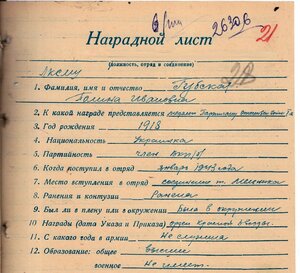 6/III 26306 21
Наградной лист
(должность, отряд и соединение)
28
1. Фамилия, имя и отчество Губская
Галина Ивановна
2. К какой награде представляется
3. Год рождения 1918
4. Национальность Украинка
5. Партийность член ВКП/б/
6. Когда поступил в отряд январь 1943 года
7. Место вступления в отряд соединение т. Мельника
8. Ранения и контузии Ранена
9. Был ли в плену или окружении Была в окружении
10. Награды (дата Указа и Приказа) орден Красной Звезды
11. С какого года в армии Не служила
12. Образование: общее высшее
военное Не имеет